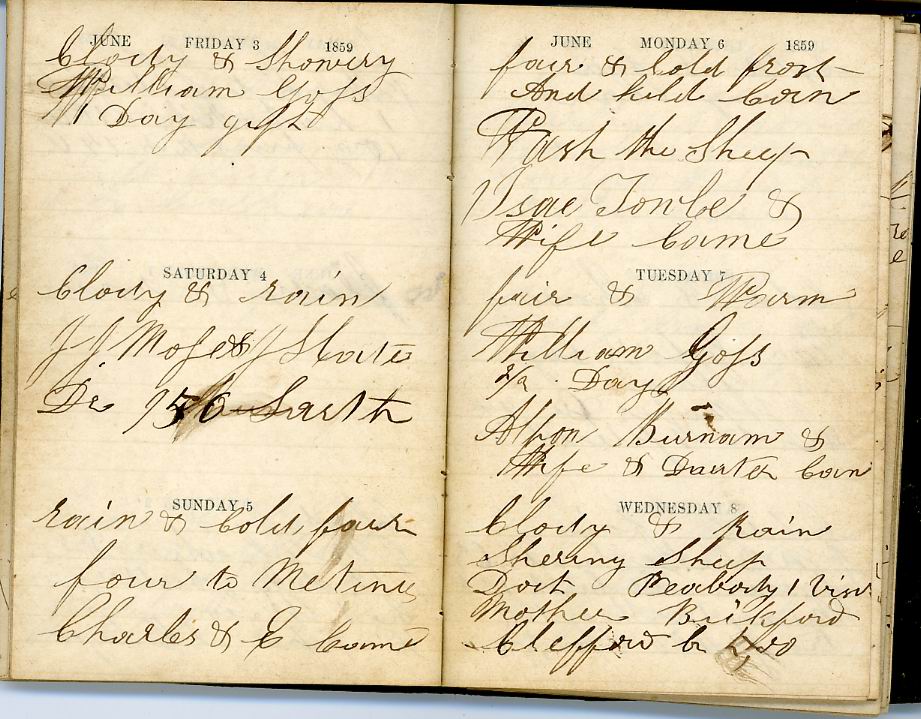 JUNE FRIDAY 3 1859
Clody & Showery
William Goss
1 Day
SATURDAY 4
Clody & rain
J J Moses &
Dr 150 Larth
SUNDAY 5
rain & Cold four
four to Meting
Charles & E Came
JUNE MONDAY 6 1859
fair & Cold frost
And kild Corn
Wash the Sheep
Isac &
Wife Came
TUESDAY 7
fair & Warm
William Goss
1/2 Day
Burnam &
Wife & Dauter Cam
WEDNESDAY 8
Clody & Rain
Shering Sheep
Doct Peabody 1 Visit
Mother Bickford
Clefford